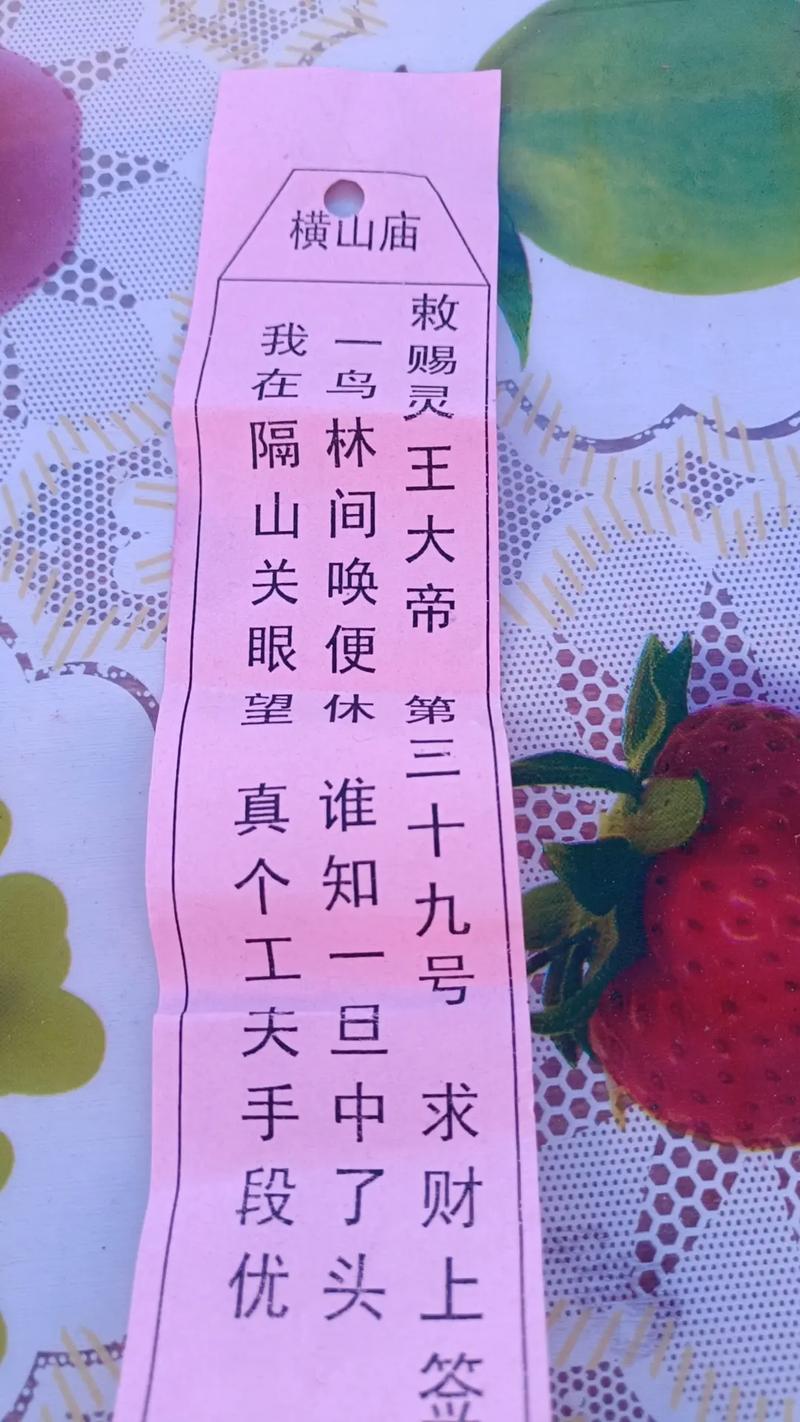 横山庙
敕赐灵王大帝 第三十九号 求财上签
一鸟林间唤便休 谁知一旦中了头
我在隔山关眼望 真个工夫手段优